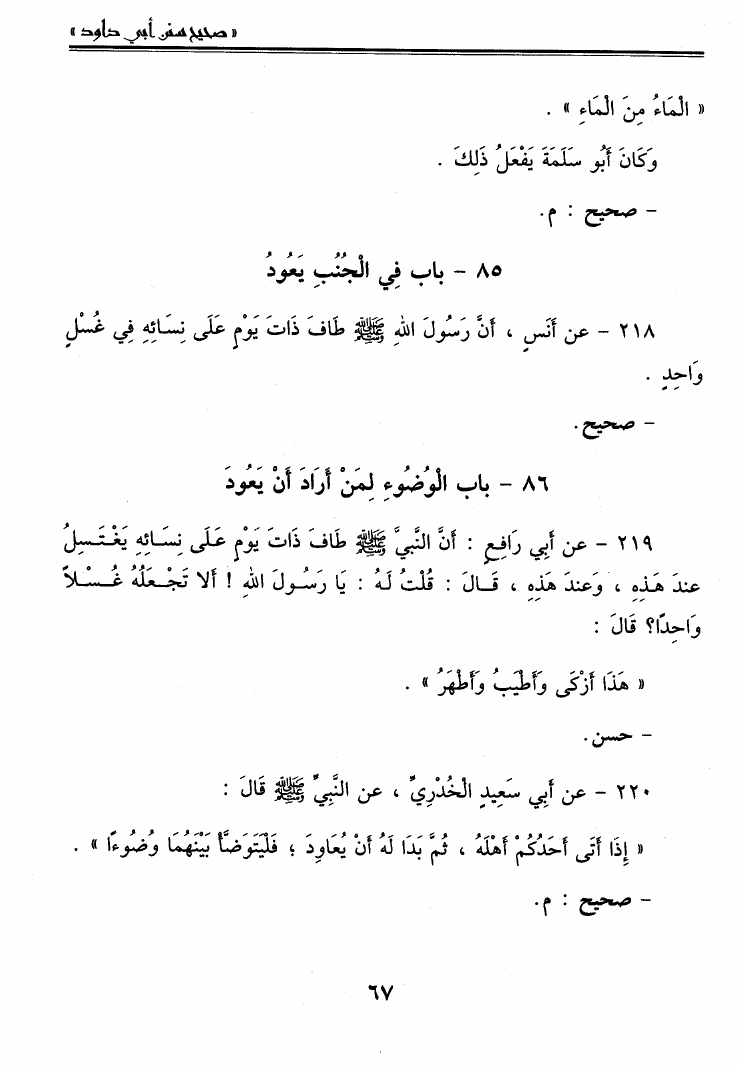 « صحيح سنن أبي داود »
« الْمَاءُ مِنَ الْمَاءِ » .
وَكَانَ أَبُو سَلَمَةَ يَفْعَلُ ذَلِكَ .
– صحيح : م.
٨٥ – باب فِي الْجُنُبِ يَعُودُ
٢١٨ – عن أَنَسٍ ، أَنَّ رَسُولَ اللهِ ﷺ طَافَ ذَاتَ يَوْمٍ عَلَى نِسَائِهِ فِي غُسْلٍ
وَاحِدٍ .
– صحيح.
٨٦ – باب الْوُضُوءِ لِمَنْ أَرَادَ أَنْ يَعُودَ
٢١٩ – عن أَبِي رَافِعٍ : أَنَّ النَّبِيَّ ﷺ طَافَ ذَاتَ يَوْمٍ عَلَى نِسَائِهِ يَغْتَسِلُ
عِندَ هَذِهِ ، وَعِندَ هَذِهِ ، قَالَ : قُلْتُ لَهُ : يَا رَسُولَ اللهِ ! أَلا تَجْعَلُهُ غُسْلاً
وَاحِدًا؟ قَالَ :
« هَذَا أَزْكَى وَأَطْيَبُ وَأَطْهَرُ » .
– حسن.
٢٢٠ – عن أَبِي سَعِيدٍ الْخُدْرِيِّ ، عن النَّبِيِّ ﷺ قَالَ :
« إِذَا أَتَى أَحَدُكُمْ أَهْلَهُ ، ثُمَّ بَدَا لَهُ أَنْ يُعَاوِدَ ؛ فَلْيَتَوَضَّأْ بَيْنَهُمَا وُضُوءًا » .
– صحيح : م.
٦٧